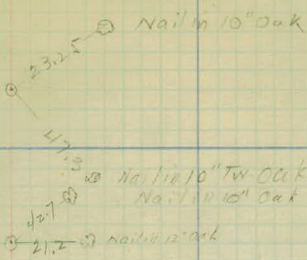 Nail in 10" Oak
23.25
47.3
Nail in 10" Tw Oak
Nail in 10" Oak
42.7
21.2 Nail in 12" Oak